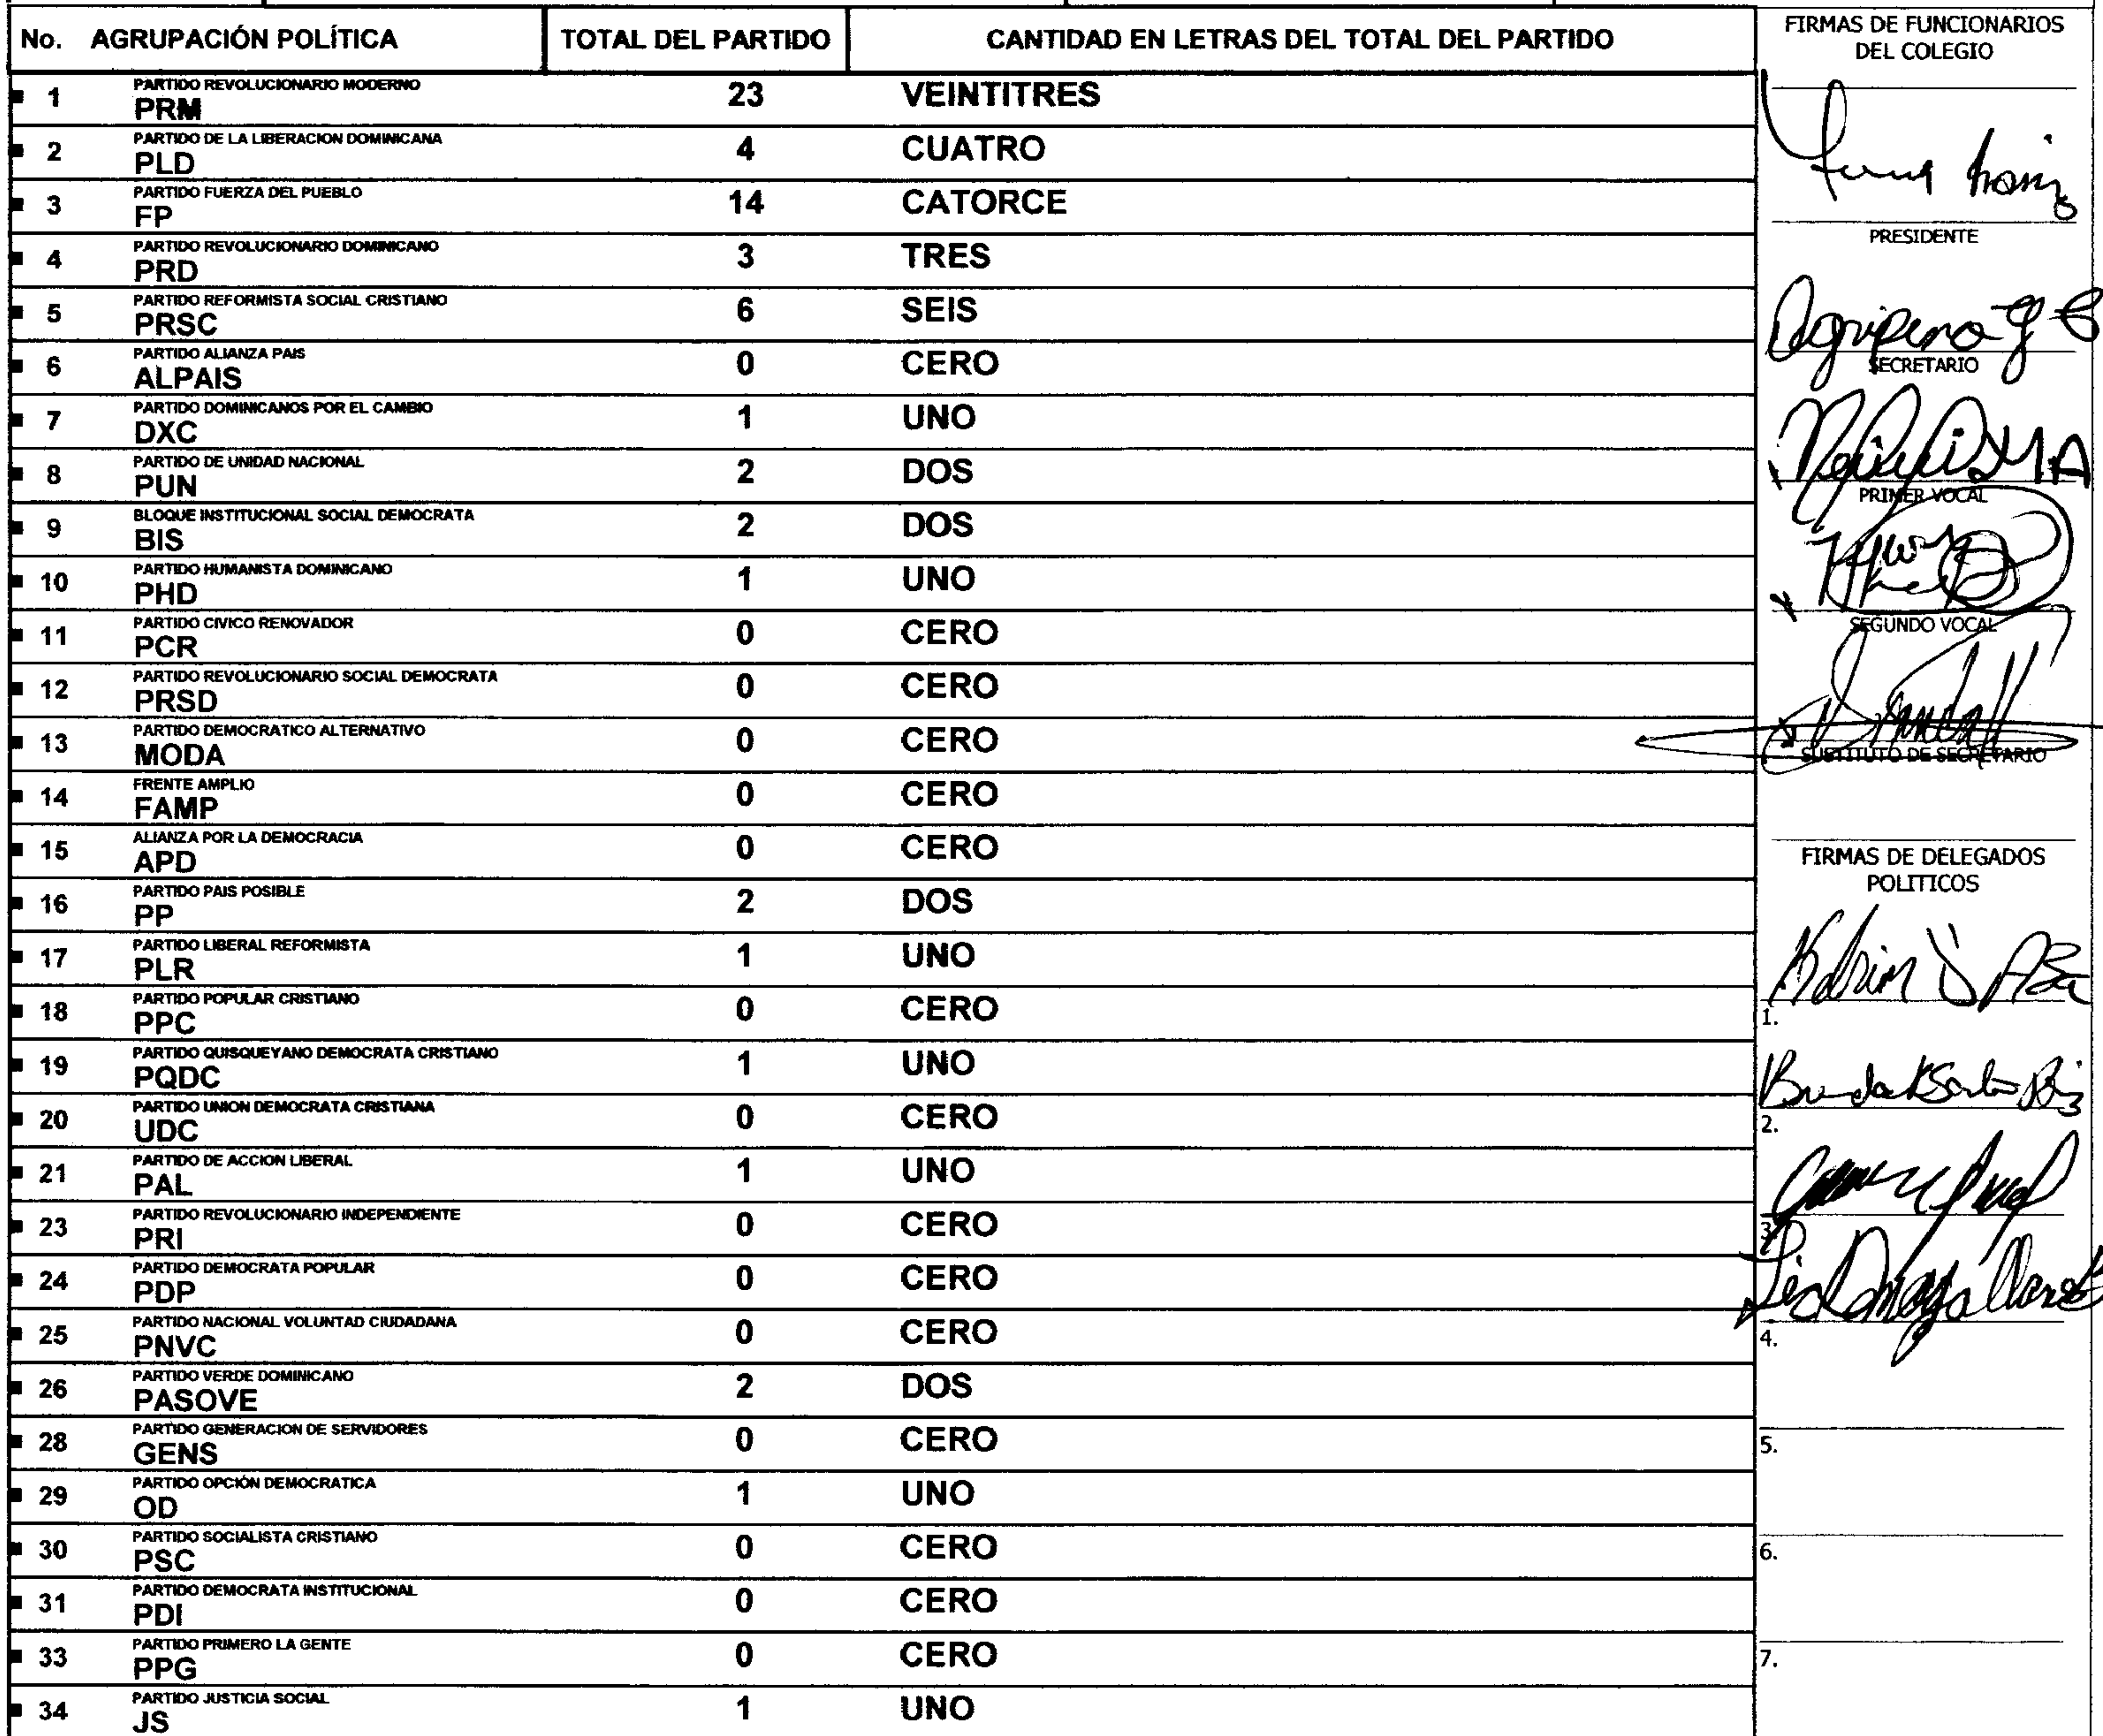 No. AGRUPACIÓN POLÍTICA TOTAL DEL PARTIDO CANTIDAD EN LETRAS DEL TOTAL DEL PARTIDO
PARTIDO REVOLUCIONARIO MODERNO
1 PRM 23 VEINTITRES
PARTIDO DE LA LIBERACION DOMINICANA
2 PLD 4 CUATRO
PARTIDO FUERZA DEL PUEBLO
3 FP 14 CATORCE
PARTIDO REVOLUCIONARIO DOMINICANO
4 PRD 3 TRES
PARTIDO REFORMISTA SOCIAL CRISTIANO
5 PRSC 6 SEIS
PARTIDO ALIANZA PAIS
6 ALPAIS 0 CERO
PARTIDO DOMINICANOS POR EL CAMBIO
7 DXC 1 UNO
PARTIDO DE UNIDAD NACIONAL
8 PUN 2 DOS
BLOQUE INSTITUCIONAL SOCIAL DEMOCRATA
9 BIS 2 DOS
PARTIDO HUMANISTA DOMINICANO
10 PHD 1 UNO
PARTIDO CIVICO RENOVADOR
11 PCR 0 CERO
PARTIDO REVOLUCIONARIO SOCIAL DEMOCRATA
12 PRSD 0 CERO
PARTIDO DEMOCRATICO ALTERNATIVO
13 MODA 0 CERO
FRENTE AMPLIO
14 FAMP 0 CERO
ALIANZA POR LA DEMOCRACIA
15 APD 0 CERO
PARTIDO PAIS POSIBLE
16 PP 2 DOS
PARTIDO LIBERAL REFORMISTA
17 PLR 1 UNO
PARTIDO POPULAR CRISTIANO
18 PPC 0 CERO
PARTIDO QUISQUEYANO DEMOCRATA CRISTIANO
19 PQDC 1 UNO
PARTIDO UNION DEMOCRATA CRISTIANA
20 UDC 0 CERO
PARTIDO DE ACCION LIBERAL
21 PAL 1 UNO
PARTIDO REVOLUCIONARIO INDEPENDIENTE
23 PRI 0 CERO
PARTIDO DEMOCRATA POPULAR
24 PDP 0 CERO
PARTIDO NACIONAL VOLUNTAD CIUDADANA
25 PNVC 0 CERO
PARTIDO VERDE DOMINICANO
26 PASOVE 2 DOS
PARTIDO GENERACION DE SERVIDORES
28 GENS 0 CERO
PARTIDO OPCIÓN DEMOCRATICA
29 OD 1 UNO
PARTIDO SOCIALISTA CRISTIANO
30 PSC 0 CERO
PARTIDO DEMOCRATA INSTITUCIONAL
31 PDI 0 CERO
PARTIDO PRIMERO LA GENTE
33 PPG 0 CERO
PARTIDO JUSTICIA SOCIAL
34 JS 1 UNO
FIRMAS DE FUNCIONARIOS
DEL COLEGIO
PRESIDENTE
SECRETARIO
PRIMER VOCAL
SEGUNDO VOCAL
SUSTITUTO DE SECRETARIO
FIRMAS DE DELEGADOS
POLITICOS
1.
2.
3.
4.
5.
6.
7.